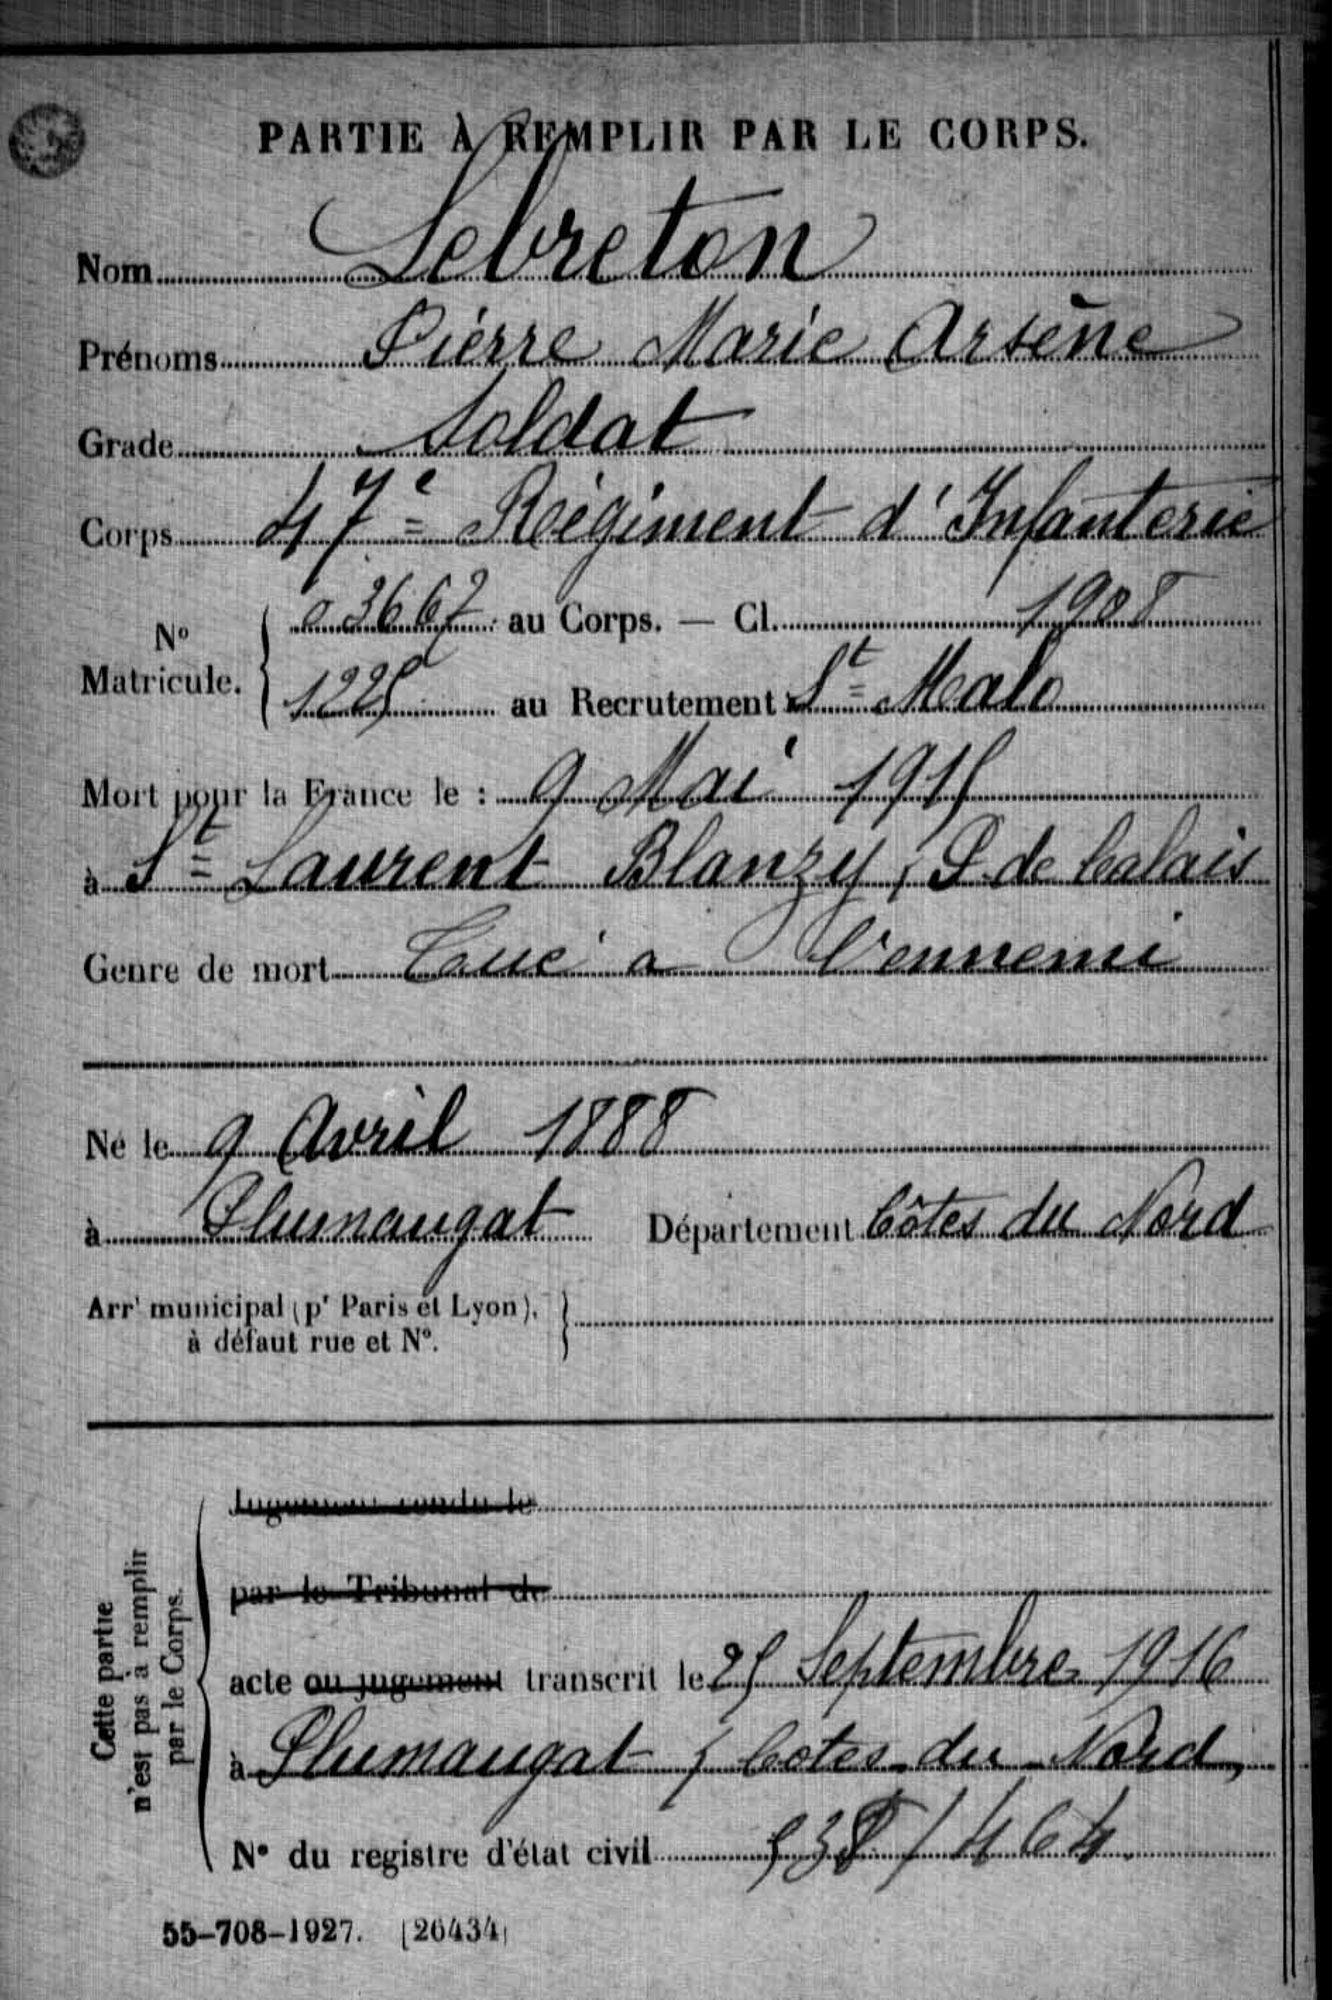 PARTIE À REMPLIR PAR LE CORPS.
Nom Lebreton
Prénoms Pierre Marie Arsène
Grade Soldat
Corps 47e Régiment d'Infanterie
N° Matricule. 03667 au Corps. — Cl. 1908
1225 au Recrutement St Malo
Mort pour la France le : 9 Mai 1915
à St Laurent Blanzy, P. de Calais
Genre de mort Tué a l'ennemi
Né le 9 Avril 1888
à Plumaugat Département Côtes du Nord
Arrt municipal (pr Paris et Lyon),
à défaut rue et N°.
Cette partie
n'est pas à remplir
par le Corps.
Jugement rendu le
par le Tribunal de
acte ou jugement transcrit le 25 Septembre 1916
à Plumaugat, Cotes du Nord,
N° du registre d'état civil 538/464.
55-708-1927. [26434]